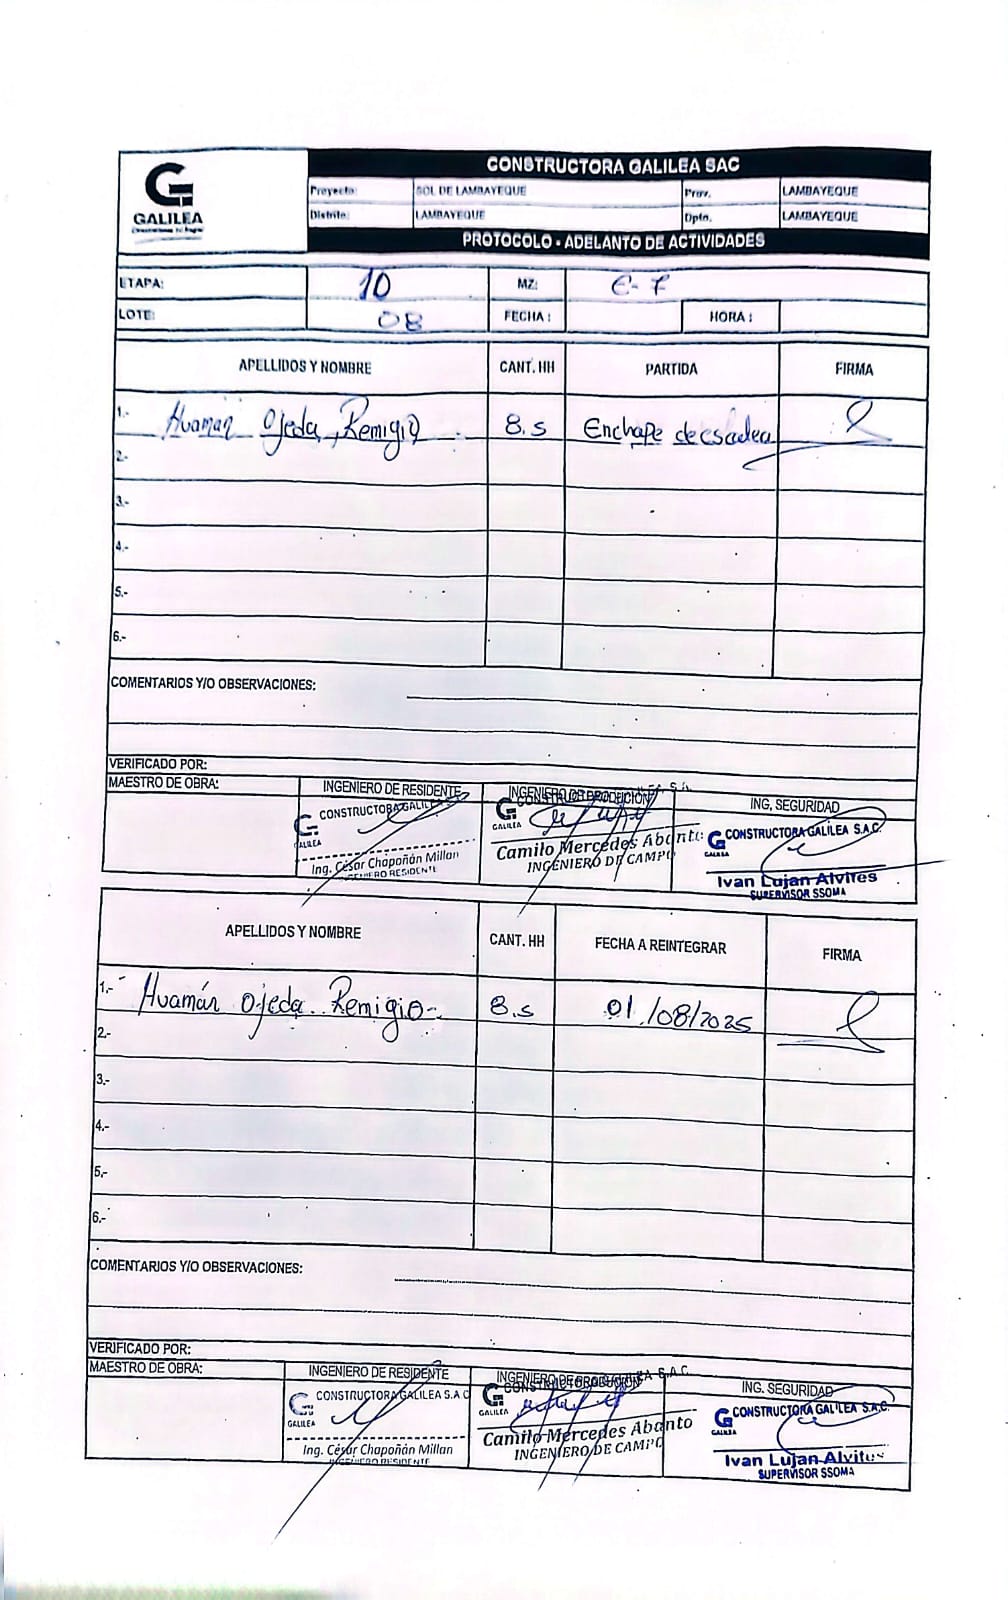 GALILEA
CONSTRUCTORA GALILEA SAC
Proyecto: SOL DE LAMBAYEQUE Prov. LAMBAYEQUE
Distrito: LAMBAYEQUE Dpto. LAMBAYEQUE
PROTOCOLO - ADELANTO DE ACTIVIDADES
ETAPA: 10 MZ: E-7
LOTE: 08 FECHA : HORA :
APELLIDOS Y NOMBRE CANT. HH PARTIDA FIRMA
1.- Huamán Ojeda, Remigio 8.5 Enchape de
2.-
3.-
4.-
5.-
6.-
COMENTARIOS Y/O OBSERVACIONES:
VERIFICADO POR:
MAESTRO DE OBRA: INGENIERO DE RESIDENTE INGENIERO DE PRODUCIÓN ING. SEGURIDAD
CONSTRUCTORA GALILEA
GALILEA
Ing. César Chapoñán Millan
INGENIERO RESIDENTE
GALILEA
Camilo Mercedes Abanto
INGENIERO DE CAMPO
CONSTRUCTORA GALILEA S.A.C.
GALILEA
Ivan Lujan Alvites
SUPERVISOR SSOMA
APELLIDOS Y NOMBRE CANT. HH FECHA A REINTEGRAR FIRMA
1.- Huamán Ojeda Remigio- 8.5 01/08/2025
2.-
3.-
4.-
5.-
6.-
COMENTARIOS Y/O OBSERVACIONES:
VERIFICADO POR:
MAESTRO DE OBRA: INGENIERO DE RESIDENTE INGENIERO DE PRODUCIÓN ING. SEGURIDAD
CONSTRUCTORA GALILEA S.A.C
GALILEA
Ing. César Chapoñán Millan
INGENIERO RESIDENTE
GALILEA
Camilo Mercedes Abanto
INGENIERO DE CAMPO
CONSTRUCTORA GALILEA S.A.C.
GALILEA
Ivan Lujan Alvites
SUPERVISOR SSOMA